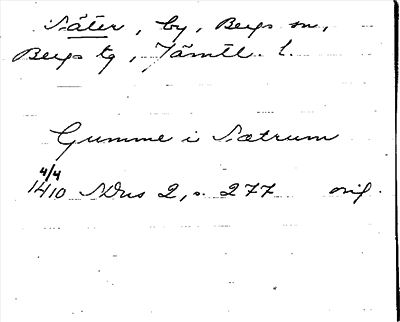 Säter, by, Bergs sn,
Bergs tg, Jämtl. l.
Gumme i Sætrum
4/4
1410 NDns 2, s. 277 orig.